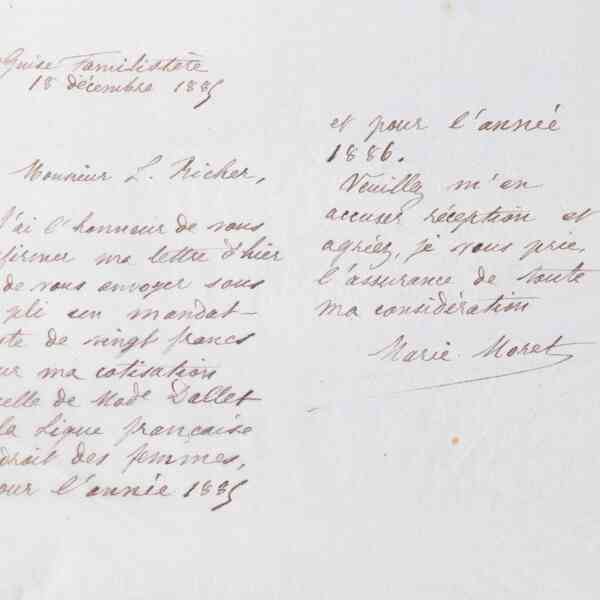 Guise Familistère
18 décembre 1885
Monsieur L. Richer,
J'ai l'honneur de vous
firmer ma lettre d'hier
de vous envoyer sous
pli un mandat-
ste de vingt francs
ur ma cotisation
celle de Made Dallet
la Ligue française
droit des femmes,
our l'année 1885
et pour l'année
1886.
Veuillez m'en
accuser réception et
agréez, je vous prie,
l'assurance de toute
ma considération
Marie Moret